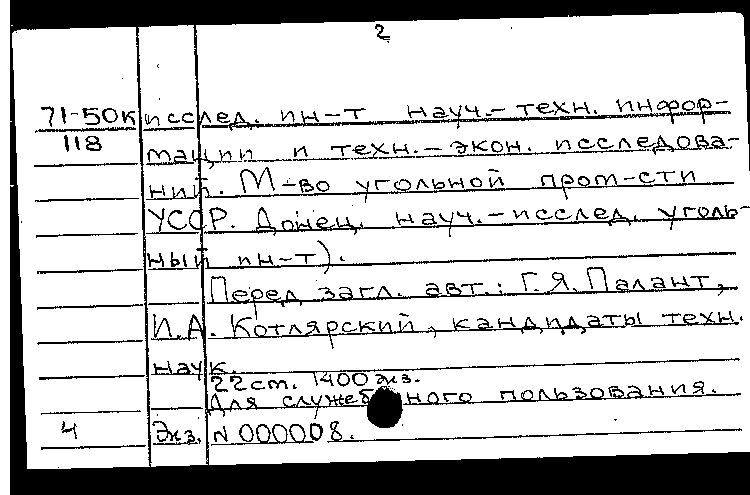 2
71-50к исслед. ин-т науч.-техн. инфор-
118 мации и техн.-экон. исследова-
ний. М-во угольной пром-сти
УССР. Донец. науч.-исслед. уголь-
ный ин-т).
Перед загл. авт.: Г.Я. Палант,
И.А. Котлярский, кандидаты техн.
наук.
22 см. 1400 экз.
Для служебного пользования.
4 Экз. N 000008.